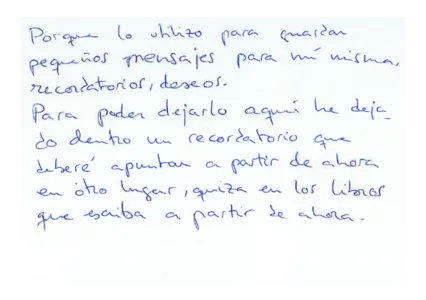 Porque lo utilizo para guardar
pequeños mensajes para mí misma,
recordatorios, deseos.
Para poder dejarlo aquí he deja_
do dentro un recordatorio que
deberé apuntar a partir de ahora
en otro lugar, quiza en los libros
que escriba a partir de ahora.